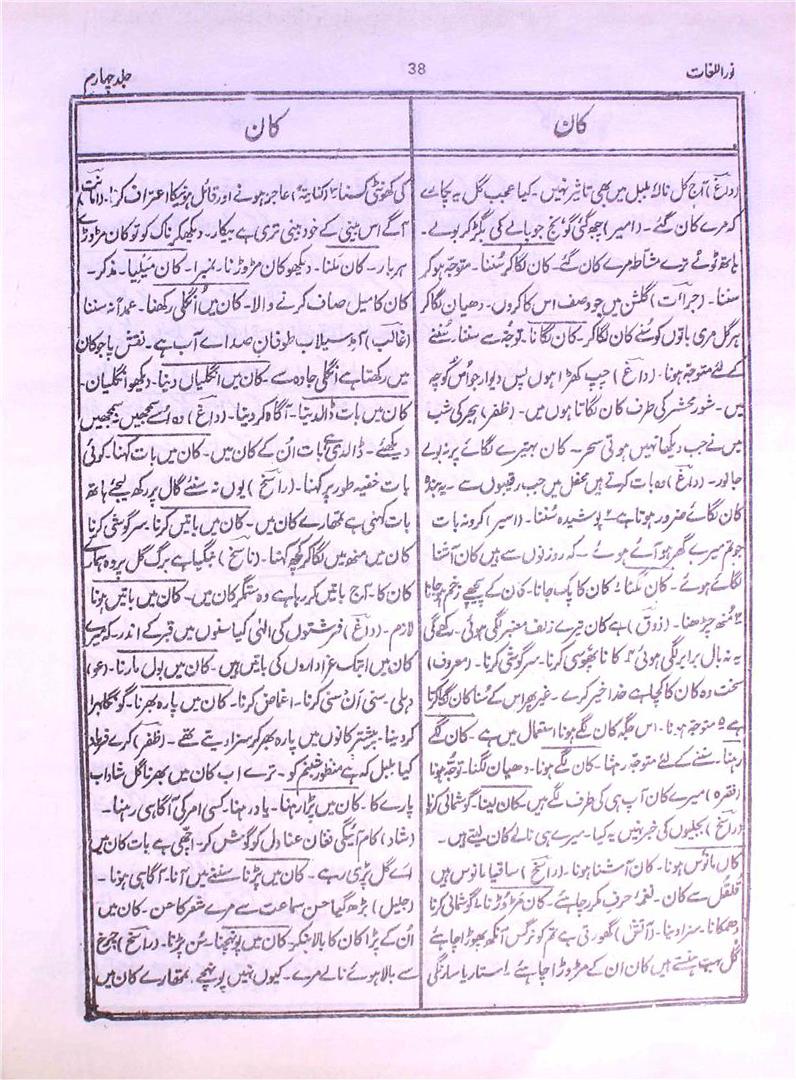 نور اللغات
38
جلد چہارم
کان
کان
(داغؔ) آج کل نالۂ بلبل میں بھی تاثیر نہیں ۔ کیا عجب گل یہ پکارے
کہ مرے کان گئے ۔ (امیر) چبھ گئی گونج جو بالے کی بگڑ کر بولے ۔
ہاتھ ٹوٹے ترے مشاطہ مرے کان گئے ۔ کان لگا کر سُننا ۔ متوجہ ہو کر
سننا ۔ (جرأت) گلشن میں جو وصف اس کا کروں ۔ دھیان لگا کر
ہر گل مری باتوں کو سُنے کان لگا کر ۔ کان لگانا ۔ توجہ سے سننا ۔ سُننے
کے لئے متوجہ ہونا ۔ (داغؔ) چپ کھڑا ہوں پس دیوار جو اُس کوچہ
میں ۔ شور محشر کی طرف کان لگاتا ہوں میں ۔ (ظفر) ہجر کی شب
میں نے جب دیکھا نہیں ہوتی سحر ۔ کان بہتیرے لگائے پر نہ بولے
جانور ۔ (داغؔ) وہ بات کرتے ہیں محفل میں جب رقیبوں سے ۔
کان لگائے ضرور ہوتا ہے ۲ پوشیدہ سُننا ۔ (اسیر) کرو نہ بات
جو تم میرے گھر ہو آئے ہوئے ۔ کہ روزنوں سے ہیں کان آشنا
لگائے ہوئے ۔ کان لگنا ۱ کان کا پک جانا ۔ کان کے پیچھے زخم ہو جانا
۲ منھ چڑھنا ۔ (ذوقؔ) ہے کان تیرے زلف معنبر لگی ہوئی ۔ رکھے گی
یہ نہ بال برابر لگی ہوئی ۳ کانا پھوسی کرنا ۔ سرگوشی کرنا ۔ (معروف)
سخت وہ کان کا کچا ہے خدا خیر کرے ۔ غیر پھر اس کے سُنا کان لگا کرتا
ہے ۵ متوجہ ہونا ۔ اس جگہ کان لگے ہونا استعمال میں ہے ۔ کان لگے
رہنا ۔ سننے کے لئے متوجہ رہنا ۔ کان لگے ہونا ۔ دھیان لگنا ۔ توجہ ہونا
(فقرہ) میرے کان آپ ہی کی طرف لگے ہیں ۔ کان لینا ۔ گوشمالی کرنا
(راسخؔ) بجلیوں کی خبر نہیں یہ کیا ۔ میرے ہی نالے کان لیتے ہیں ۔
کان مانوس ہونا ۔ کان آشنا ہونا ۔ (راسخؔ) ساقیا مانوس ہیں
قلقل سے کان ۔ لغمۂ حرف مکرر چاہئے ۔ کان مڑوڑنا ۔ گوشمالی کرنا
دھمکانا ۔ سزا دینا ۔ (آتش) گھورتی ہے تم کو نرگس آنکھ پھوڑا چاہئے
گل بہت ہنستے ہیں کان ان کے مڑوڑا چاہئے ۔ ستار یا سارنگی
کی کھونٹی کسنا ۲ (کنایۃً) عاجز ہونے اور قائل ہونے کا اعتراف کرنا ۔ (امانت)
آگے اس بینی کے خود بینی تری ہے بیکار ۔ دیکھ کر ناک کو تو کان مڑوڑے
ہر بار ۔ کان ملنا ۔ دیکھو کان مڑوڑنا ۔ نمبر۱ ۔ کان میلیا ۔ مذکر ۔
کان کا میل صاف کرنے والا ۔ کان میں اُنگلی رکھنا ۔ عمداً نہ سننا
(غالبؔ) آمد سیلاب طوفان صدائے آب ہے ۔ نقش پا جو کان
میں رکھتا ہے انگلی جادہ سے ۔ کان میں انگلیاں دینا ۔ دیکھو انگلیاں ۔
کان میں بات ڈالدینا ۔ آگاہ کر دینا ۔ (داغؔ) وہ اُسے سمجھیں نہ سمجھیں
دیکھئے ۔ ڈالدی ہے بات اُن کے کان میں ۔ کان میں بات کہنا ۔ کوئی
بات خفیہ طور پر کہنا ۔ (راسخؔ) یوں نہ سنئے گال پر رکھ لیجئے ہاتھ
بات کہنی ہے تمھارے کان میں ۔ کان میں باتیں کرنا ۔ سرگوشی کرنا
کان میں منھ میں لگا کر کچھ کہنا ۔ (ناسخؔ) جھکیا ہے برگ گل پر وہ ہمارے
کان کا ۔ آج باتیں کر رہا ہے وہ ستمگر کان میں ۔ کان میں باتیں ہونا
لازم ۔ (داغؔ) فرشتوں کی الٰہی کیا سنوں میں قبر کے اندر کہ میرے
کان میں ابتک عزاداروں کی باتیں ہیں ۔ کان میں بول مارنا ۔ (عو)
دہلی ۔ سنی اَن سنی کرنا ۔ اغماض کرنا ۔ کان میں پارہ بھرنا ۔ گونگا بہرا
کر دینا ۔ بیشتر کانوں میں پارہ بھر کر سزا دیتے تھے ۔ (ظفر) کرے فریاد
کیا بلبل کہ ہے منظور شبنم کو ۔ ترے اب کان میں بھرنا گل شاداب
پارے کا ۔ کان میں پڑا رہنا ۔ یاد رہنا ۔ کسی امر کی آگاہی رہنا ۔
(شاد) کام آئیگی فغان عنادل کو گوش کر ۔ اچھی ہے بات کان میں
اے گل پڑی رہے ۔ کان میں پڑنا سننے میں آنا ۔ آگاہی ہونا ۔
(جلیل) بڑھ گیا حسن سماعت سے مرے شعر کا حسن ۔ کان میں
اُن کے پڑا کان کا بالا ہو کر ۔ کان میں پہونچنا ۔ سُن پڑنا ۔ (راسخؔ) چرخ
سے بالا ہوئے نالے مرے ۔ کیوں نہیں پہونچے تمھارے کان میں